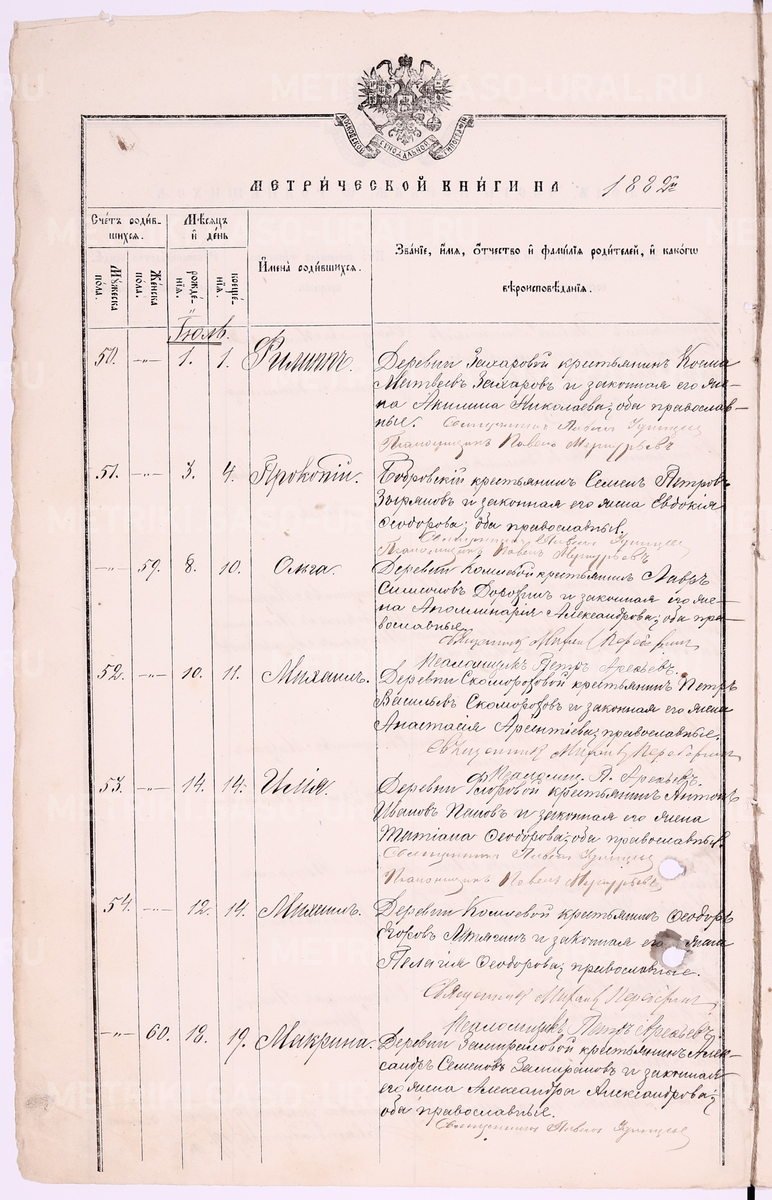 МОСКОВСКОЙ СѴНОДАЛЬНОЙ ТИПОГРАФІИ
МЕТРИ́ЧЕСКОЙ КНИ́ГИ НА 1882 го
Сче́тъ роди́в-
шихся.
Мꙋ́жеска
пола.
Же́нска
пола.
Мѣ́сяцъ
и҆ де́нь
рожде́-
нїя.
креще́-
нїя.
И҆мена̀ роди́вшихся.
Зва́нїе, и҆́мя, ѻ҆́тчество и҆ фами́лїя роди́телей, и҆ како́гѡ
вѣроисповѣ́данїя.
Іюль.
50. -"- 1. 1. Филиппъ. Деревни Захаровой крестьянинъ Косма
Матвеевъ Захаровъ и законная его же-
на Акилина Николаева; оба православ-
ные. Священникъ Павелъ
Псаломщикъ Павелъ
51. -"- 3. 4. Прокопій. Бобровскій крестьянинъ Семенъ Петровъ
Зыряновъ и законная его жена Евдокія
Ѳеодорова; оба православные.
Священникъ Павелъ
Псаломщикъ Павелъ
-"- 59. 8. 10. Ольга. Деревни Комлевой крестьянинъ Савъ
Симеоновъ и законная его же-
на Аполлинарія Александрова; оба пра-
вославные.
Священникъ
Псаломщикъ Петръ
52. -"- 10. 11. Михаилъ. Деревни Скоморозовой крестьянинъ Петръ
Васильевъ Скоморозовъ и законная его жена
Анастасія Арсентіева; православные.
Священникъ
Псаломщ. П.
53. -"- 14. 14. Илія. Деревни Фроровой крестьянинъ Антонъ
Ивановъ Пановъ и законная его жена
Татіана Ѳеодорова; оба православные.
Священникъ Павелъ
Псаломщикъ Павелъ
54. -"- 12. 14. Михаилъ. Деревни Комлевой крестьянинъ Ѳеодоръ
Егоровъ и законная его жена
Пелагія Ѳеодорова; православные.
Священникъ
Псаломщикъ Петръ
-"- 60. 18. 19. Макрина. Деревни крестьянинъ Алек-
сандръ Семеновъ и законная
его жена Александра Александрова;
оба православные.
Священникъ Павелъ